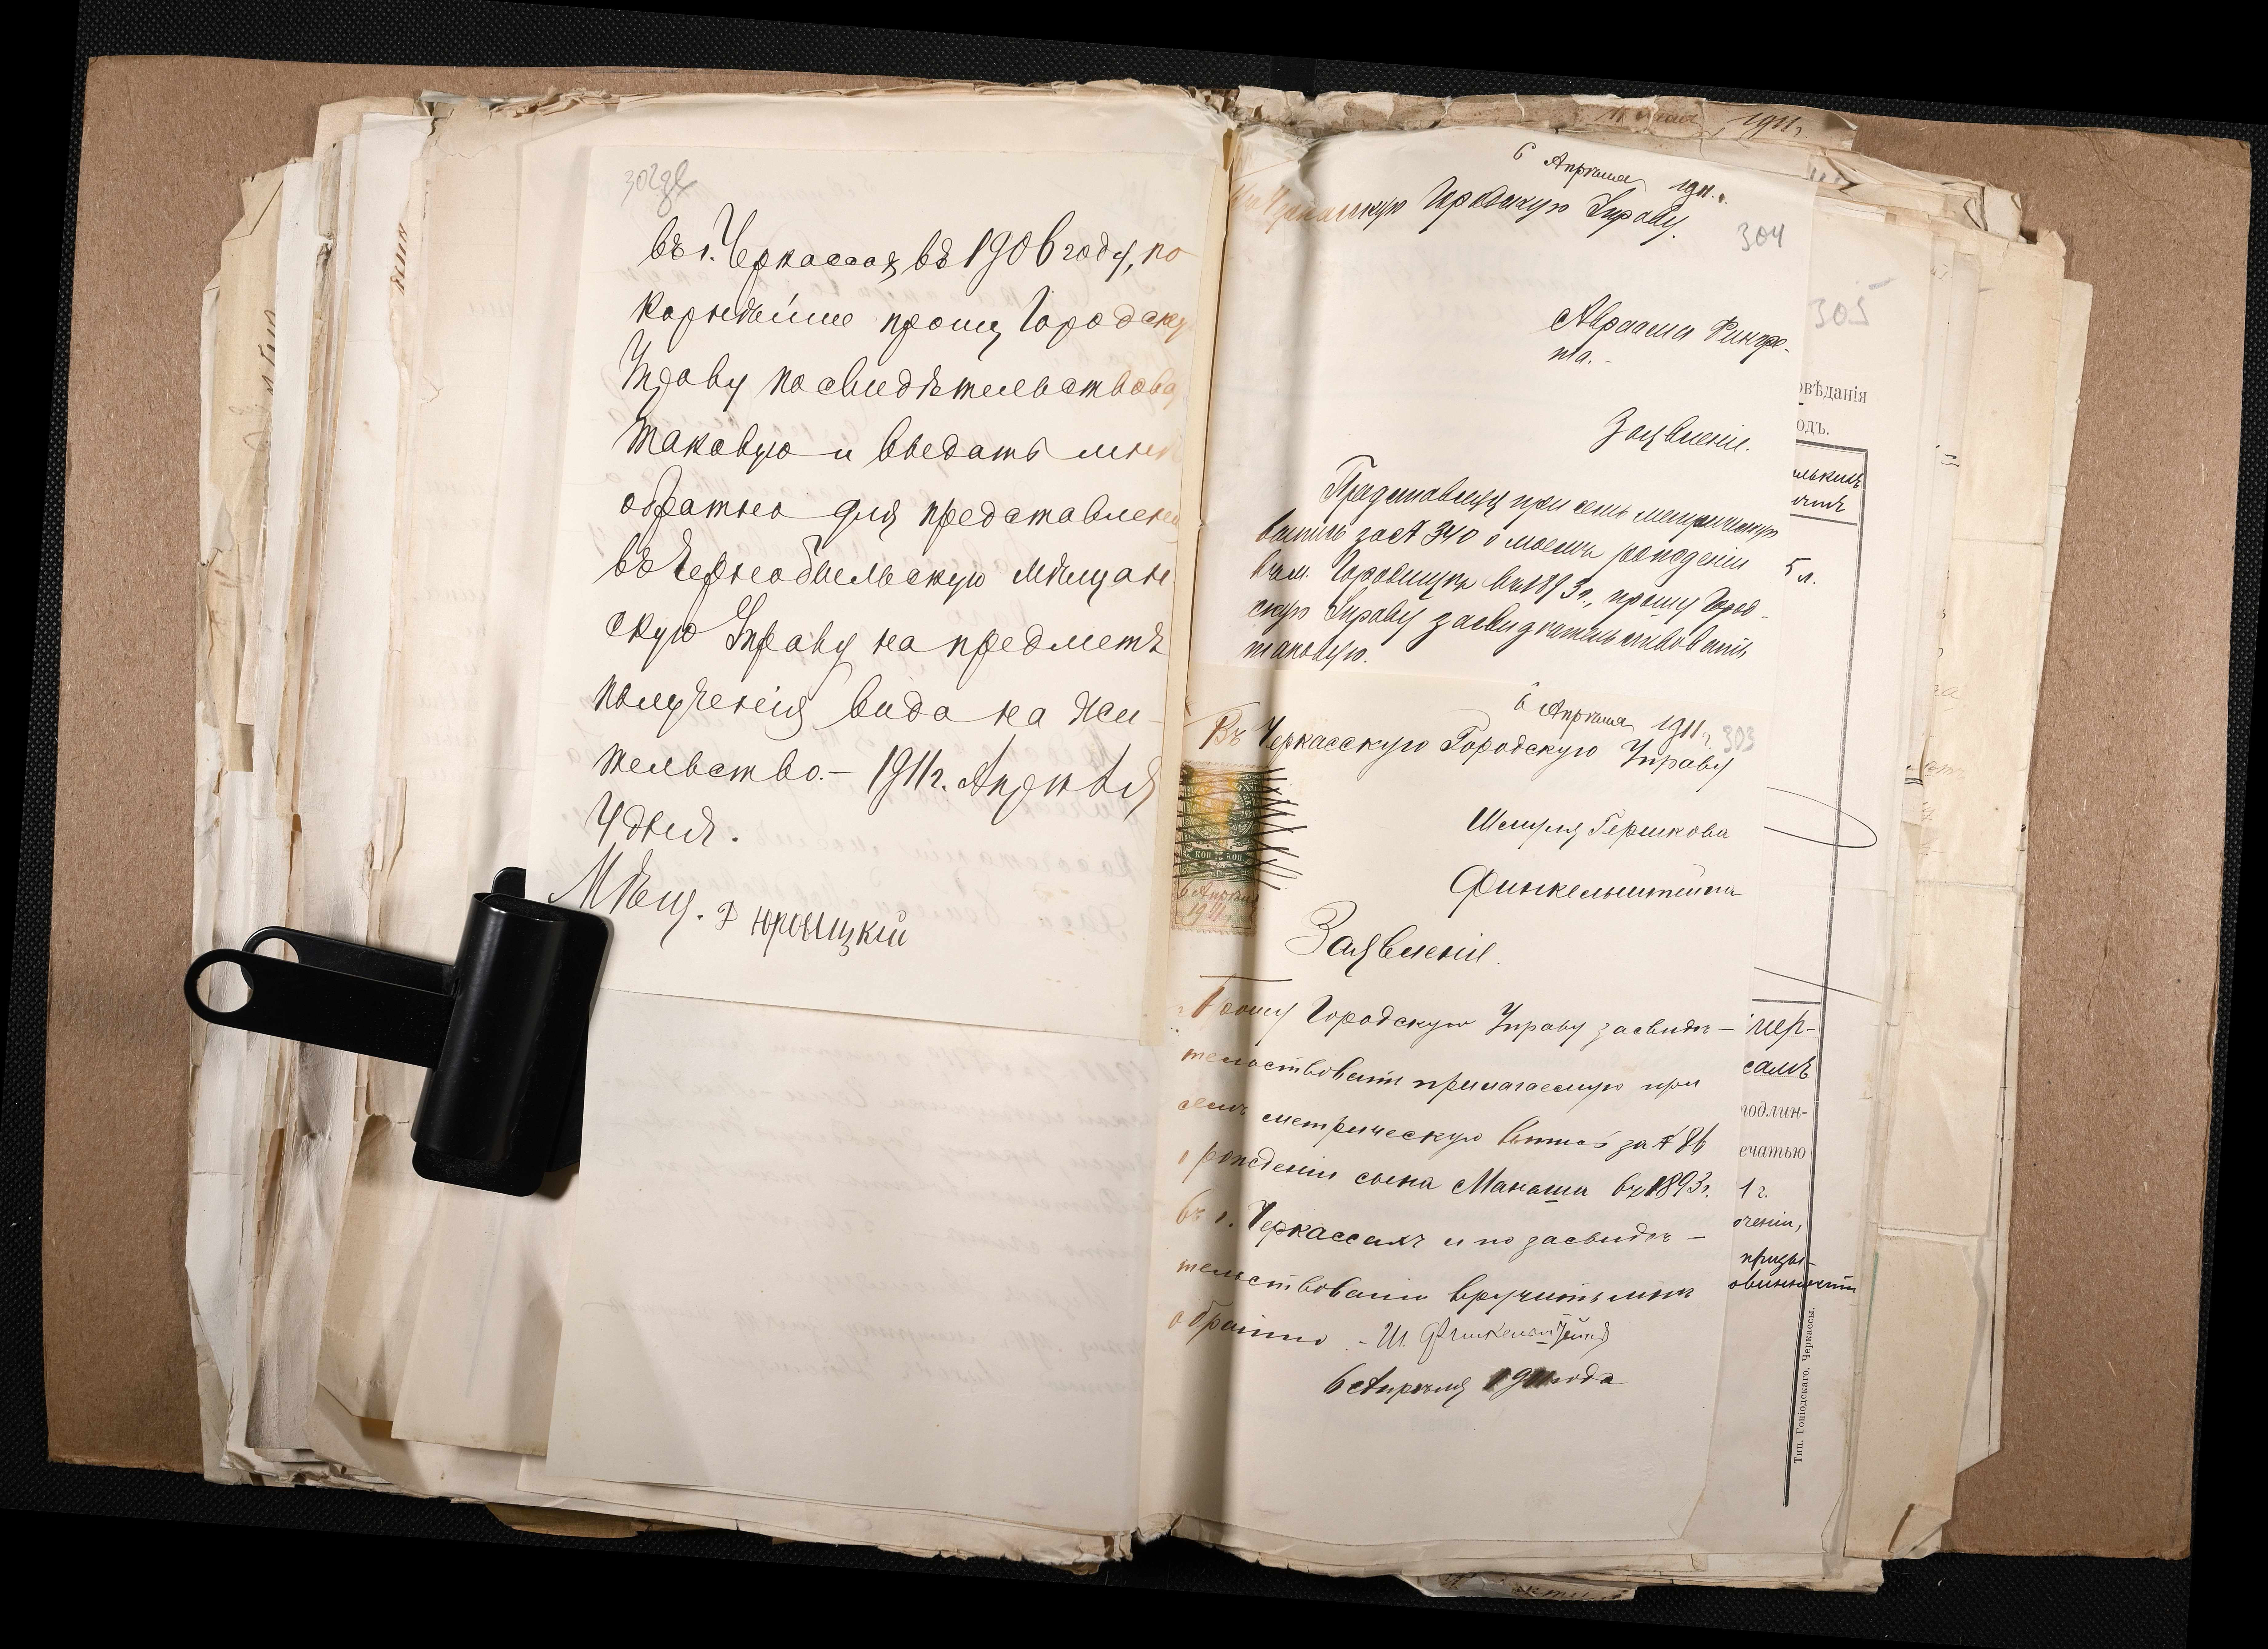 302 зв
въ г. Черкассах въ 1906 году, по
корнейше прошу Городску
Управу посвидѣтельствова
таковую и выдать мнѣ
обратно для представлен
въ Чернобыльскую Мѣщан
скую Управу на предметъ
полученія вида на жи-
тельство. — 1911 г. Апрѣля
4 дня.
Мѣщ. Юровицкій
1911 г.
6 Апрѣля 1911 г.
Черкасскую Городскую Управу.
304
Авраама Рингре-
та. -
Заявленіе.
Представляя при семъ метрическую
выпись за № 340 о моемъ рожденіи
въ м. Городищѣ въ 1893 г., прошу Город-
скую Управу засвидѣтельствовать
таковую.
6 Апрѣля 1911 г.
303
Въ Черкасскую Городскую Управу
Шмуля Гершкова
Финкельштейна
КОП 75 КОП.
6 Апрѣля
1911
Заявленіе.
Прошу Городскую Управу засвидѣ-
тельствовать прилагаемую при
семъ метрическую выпись за № 86
о рожденіи сына Манаша въ 1893 г.
въ г. Черкассахъ и по засвидѣ-
тельствованіи вручить мнѣ
обратно - Ш. Финкельштейнъ
6 Апрѣля 1911 года
305
овѣданія
одъ.
5 л.
чер-
самъ
годлин-
ечатью
1 г.
оченіи,
призы-
овинности
Тип. Гоніодскаго, Черкассы.